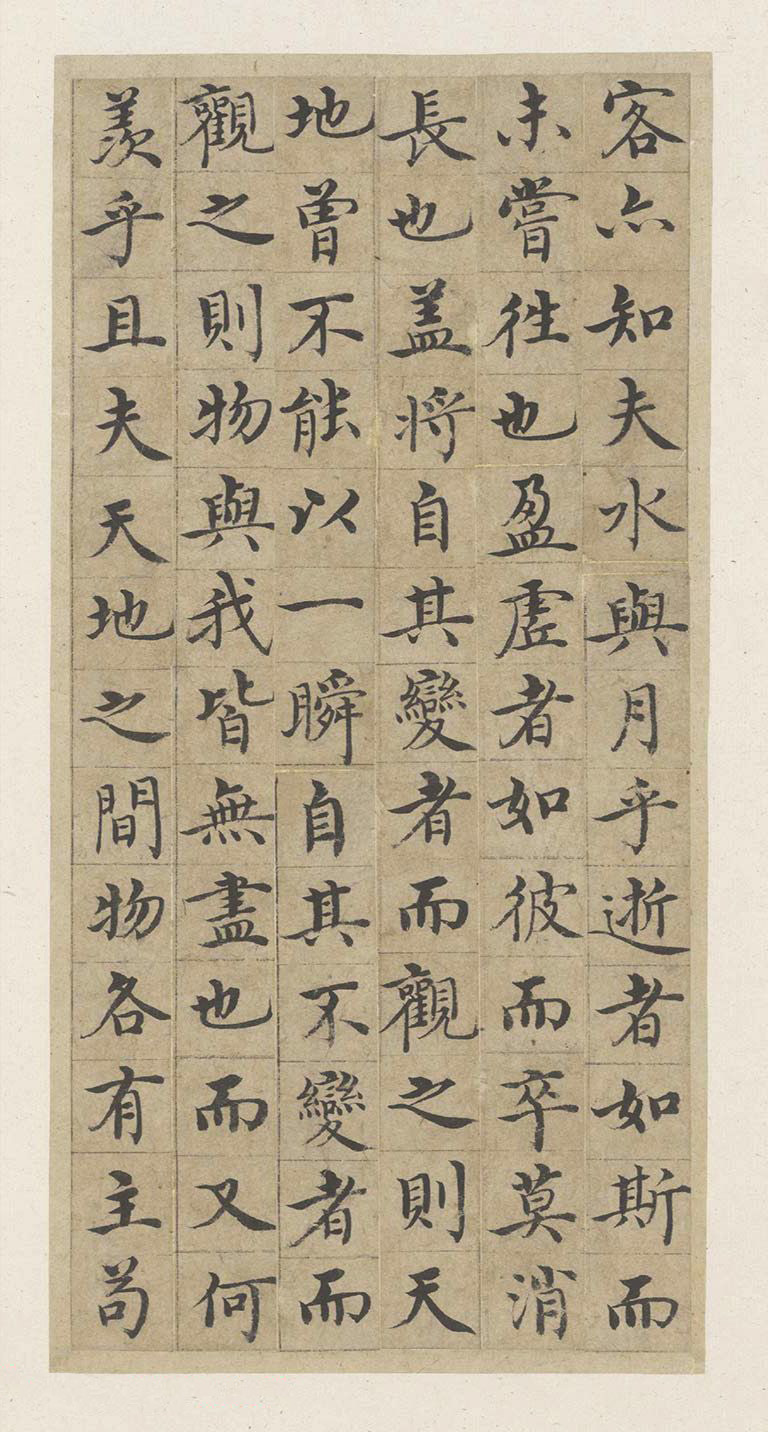 客亦知夫水與月乎逝者如斯而
未嘗往也盈虗者如彼而卒莫消
長也盖將自其變者而觀之則天
地曾不能以一瞬自其不變者而
觀之則物與我皆無盡也而又何
羨乎且夫天地之間物各有主茍